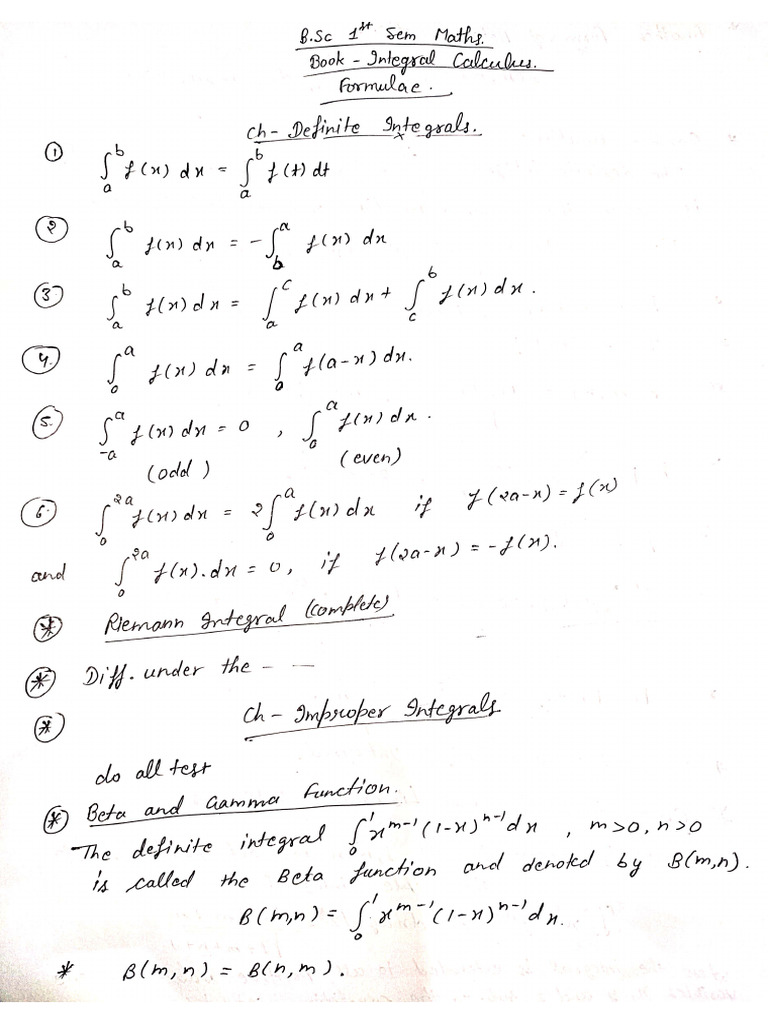 B.Sc 1st Sem Maths.
Book - Integral Calculus.
Formulae.
Ch - Definite Integrals.
① ∫_a^b f(x) dx = ∫_a^b f(t) dt
② ∫_a^b f(x) dx = - ∫_b^a f(x) dx
③ ∫_a^b f(x) dx = ∫_a^c f(x) dx + ∫_c^b f(x) dx.
④. ∫_0^a f(x) dx = ∫_0^a f(a-x) dx.
⑤. ∫_-a^a f(x) dx = 0 , ∫_0^a f(x) dx.
(odd) (even)
⑥. ∫_0^2a f(x) dx = 2 ∫_0^a f(x) dx if f(2a-x) = f(x)
and ∫_0^2a f(x). dx = 0, if f(2a-x) = -f(x).
* Riemann Integral (complete)
* Diff. under the - -
* Ch - Improper Integrals
do all test
* Beta and Gamma Function.
The definite integral ∫_0^1 x^m-1 (1-x)^n-1 dx , m>0, n>0
is called the Beta function and denoted by B(m,n).
B(m,n) = ∫_0^1 x^m-1 (1-x)^n-1 dx.
* B(m,n) = B(n,m).